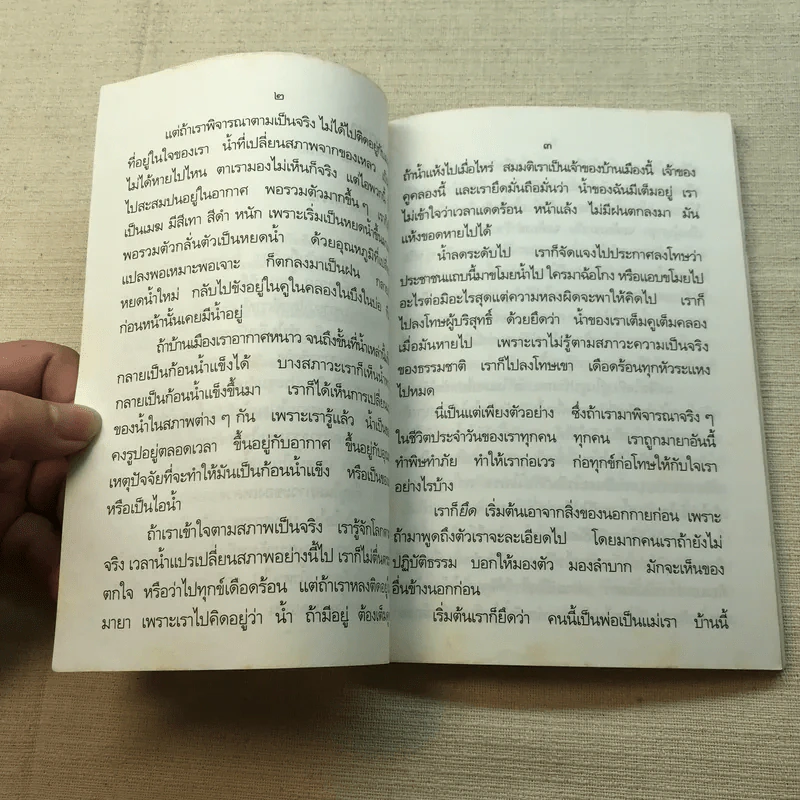 ๒
แต่ถ้าเราพิจารณาตามเป็นจริง ไม่ได้ไปติดอยู่กับ
ที่อยู่ในใจของเรา น้ำที่เปลี่ยนสภาพจากของเหลว
ไม่ได้หายไปไหน ตาเรามองไม่เห็นก็จริง แต่ไอพวกนี้
ไปสะสมปนอยู่ในอากาศ พอรวมตัวมากขึ้นๆ
เป็นเมฆ มีสีเทา สีดำ หนัก เพราะเริ่มเป็นหยดน้ำขึ้น
พอรวมตัวกลั่นตัวเป็นหยดน้ำ ด้วยอุณหภูมิที่
แปลงพอเหมาะพอเจาะ ก็ตกลงมาเป็นฝน
หยดน้ำใหม่ กลับไปขังอยู่ในคูในคลองในบึงในบ่อ
ก่อนหน้านั้นเคยมีน้ำอยู่
ถ้าบ้านเมืองเราอากาศหนาว จนถึงขั้นที่น้ำเหล่านั้น
กลายเป็นก้อนน้ำแข็งได้ บางสภาวะเราก็เห็นน้ำ
กลายเป็นก้อนน้ำแข็งขึ้นมา เราก็ได้เห็นการเปลี่ยน
ของน้ำในสภาพต่าง ๆ กัน เพราะเรารู้แล้ว น้ำ
คงรูปอยู่ตลอดเวลา ขึ้นอยู่กับอากาศ ขึ้นอยู่กับ
เหตุปัจจัยที่จะทำให้มันเป็นก้อนน้ำแข็ง หรือเป็น
หรือเป็นไอน้ำ
ถ้าเราเข้าใจตามสภาพเป็นจริง เรารู้จักโลก
จริง เวลาน้ำแปรเปลี่ยนสภาพอย่างนี้ไป เราก็ไม่ตื่น
ตกใจ หรือว่าไปทุกข์เดือดร้อน แต่ถ้าเราหลงติดอยู่
มายา เพราะเราไปคิดอยู่ว่า น้ำ ถ้ามีอยู่ ต้องเต็ม
๓
ถ้าน้ำแห้งไปเมื่อไหร่ สมมติเราเป็นเจ้าของบ้านเมืองนี้ เจ้าของ
คูคลองนี้ และเรายึดมั่นถือมั่นว่า น้ำของฉันมีเต็มอยู่ เรา
ไม่เข้าใจว่าเวลาแดดร้อน หน้าแล้ง ไม่มีฝนตกลงมา มัน
แห้งขอดหายไปได้
น้ำลดระดับไป เราก็จัดแจงไปประกาศลงโทษว่า
ประชาชนแถบนี้มาขโมยน้ำไป ใครมาฉ้อโกง หรือแอบขโมยไป
อะไรต่อมิอะไรสุดแต่ความหลงผิดจะพาให้คิดไป เราก็
ไปลงโทษผู้บริสุทธิ์ ด้วยยึดว่า น้ำของเราเต็มคูเต็มคลอง
เมื่อมันหายไป เพราะเราไม่รู้ตามสภาวะความเป็นจริง
ของธรรมชาติ เราก็ไปลงโทษเขา เดือดร้อนทุกหัวระแหง
ไปหมด
นี่เป็นแต่เพียงตัวอย่าง ซึ่งถ้าเรามาพิจารณาจริง ๆ
ในชีวิตประจำวันของเราทุกคน ทุกคน เราถูกมายาอันนี้
ทำพิษทำภัย ทำให้เราก่อเวร ก่อทุกข์ก่อโทษให้กับใจเรา
อย่างไรบ้าง
เราก็ยึด เริ่มต้นเอาจากสิ่งของนอกกายก่อน เพราะ
ถ้ามาพูดถึงตัวเราจะละเอียดไป โดยมากคนเราถ้ายังไม่
ปฏิบัติธรรม บอกให้มองตัว มองลำบาก มักจะเห็นของ
อื่นข้างนอกก่อน
เริ่มต้นเราก็ยึดว่า คนนี้เป็นพ่อเป็นแม่เรา บ้านนี้